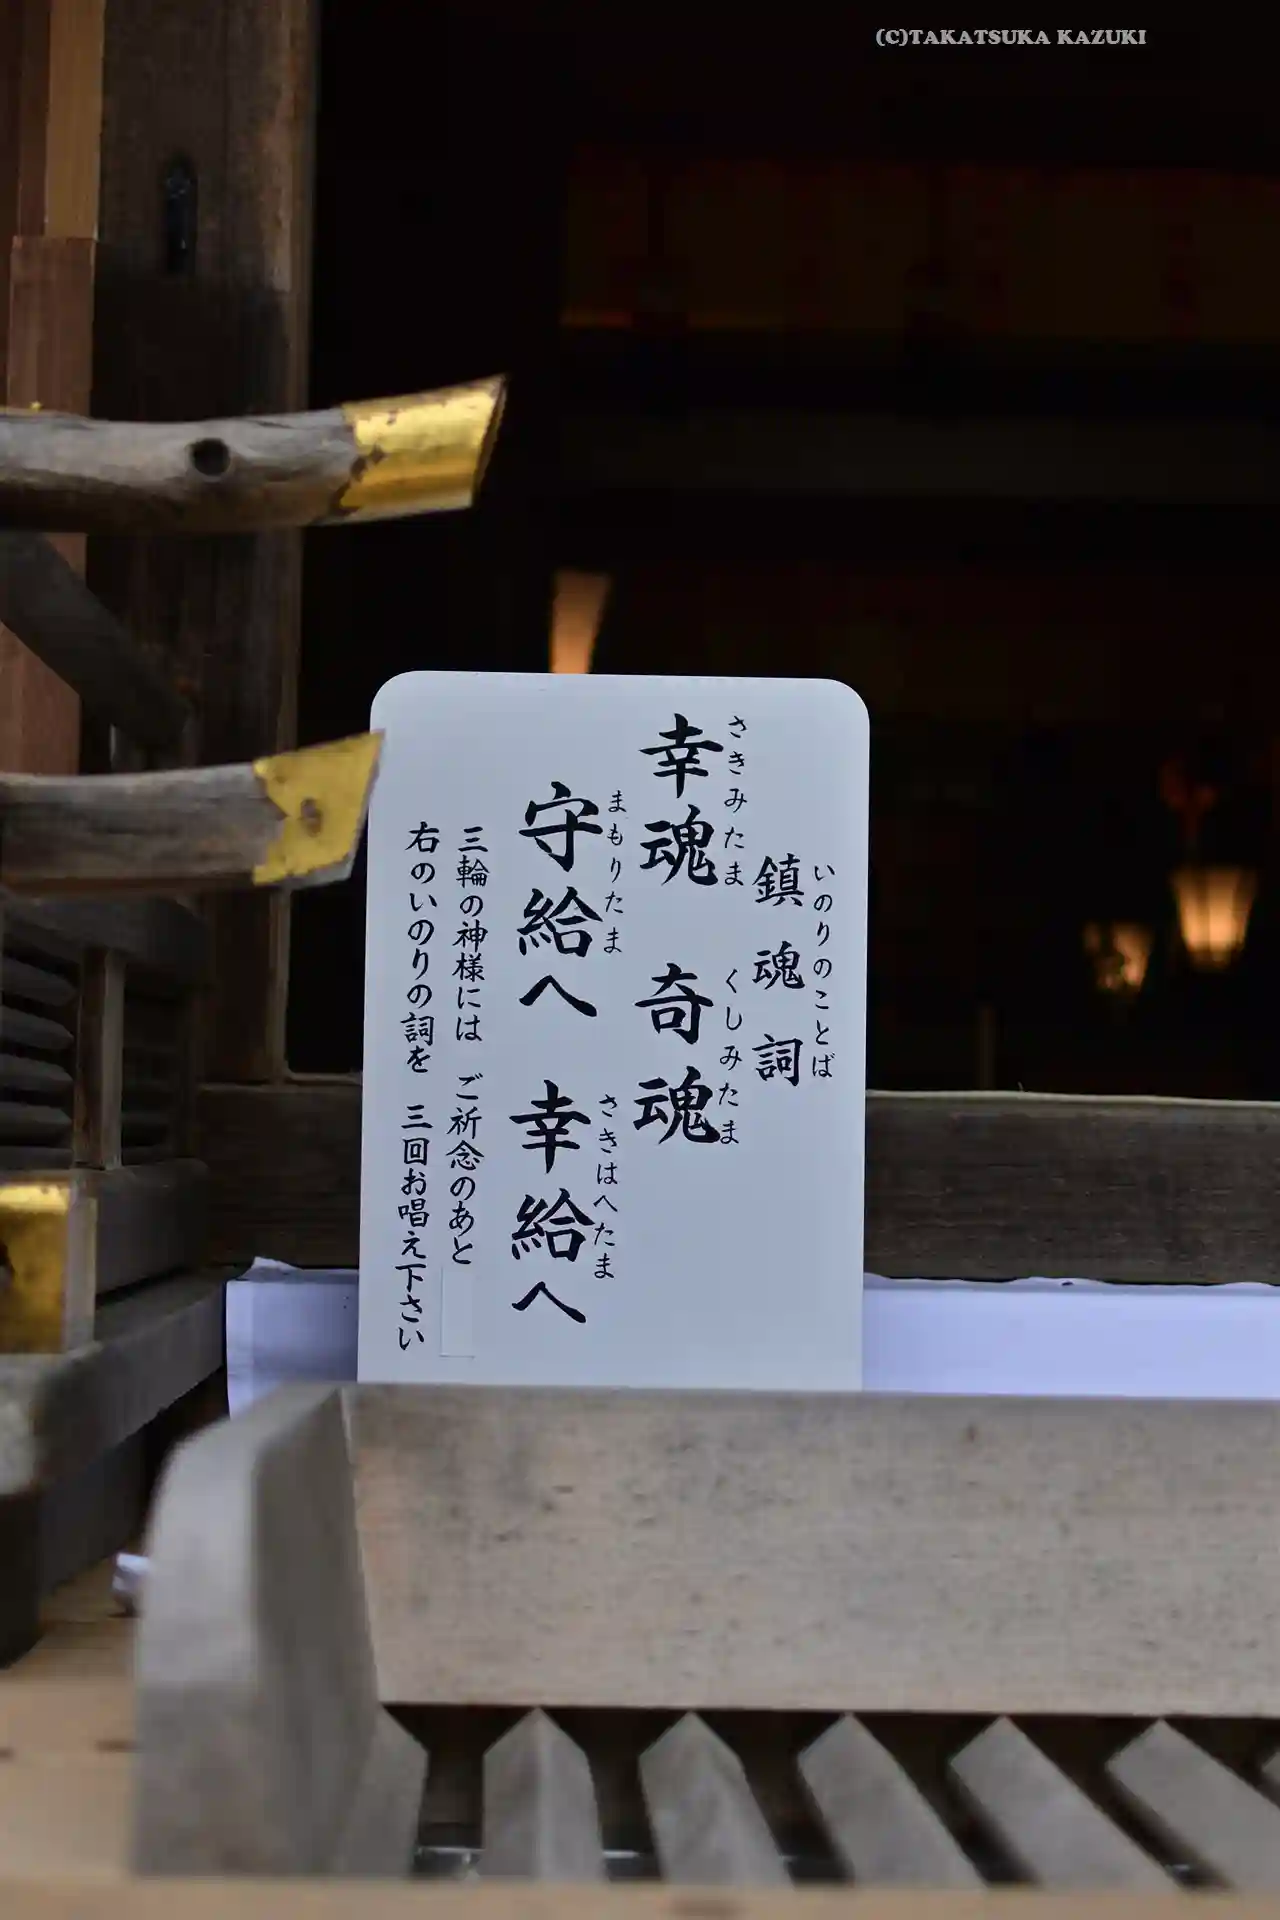 (C)TAKATSUKA KAZUKI
いのりのことば
鎮魂詞
さきみたま くしみたま
幸魂 奇魂
まもりたま さきはへたま
守給へ 幸給へ
三輪の神様には ご祈念のあと
右のいのりの詞を 三回お唱え下さい